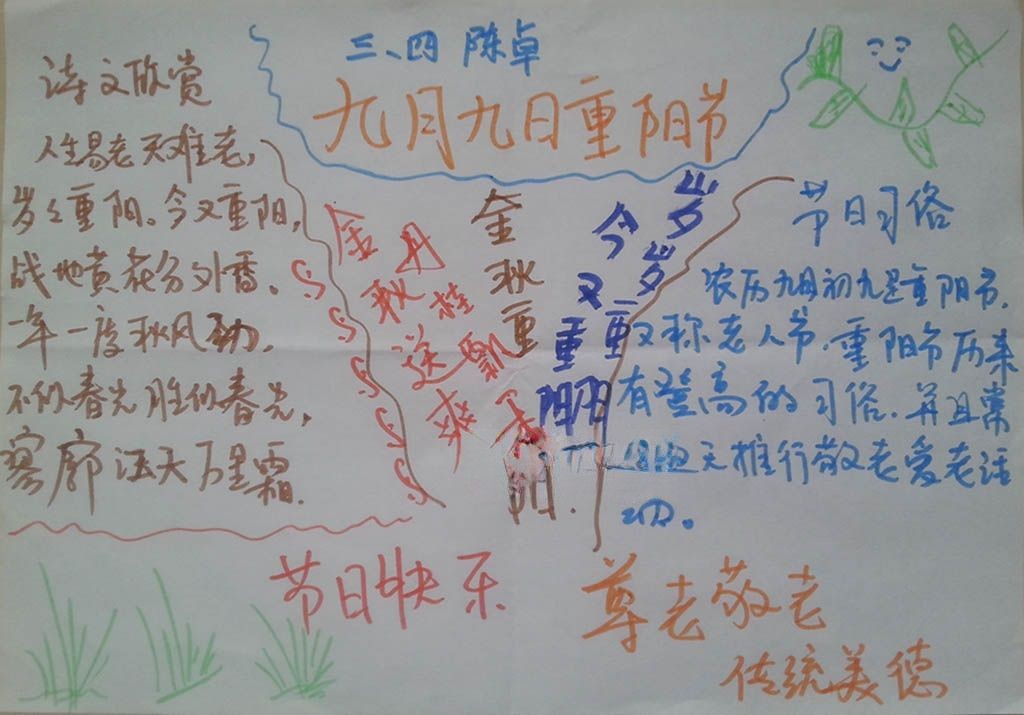 三、四 陈卓
九月九日重阳节
诗文欣赏
人生易老天难老,
岁岁重阳。今又重阳,
战地黄花分外香。
一年一度秋风劲,
不似春光胜似春光,
寥廓江天万里霜.
金秋送爽
丹桂飘
金秋重阳.
岁岁重阳
今又重阳
节日习俗
农历九月初九是重阳节,
又称老人节.重阳节历来
有登高的习俗.并且常
天推行敬老爱老活
动。
节日快乐
尊老敬老
传统美德